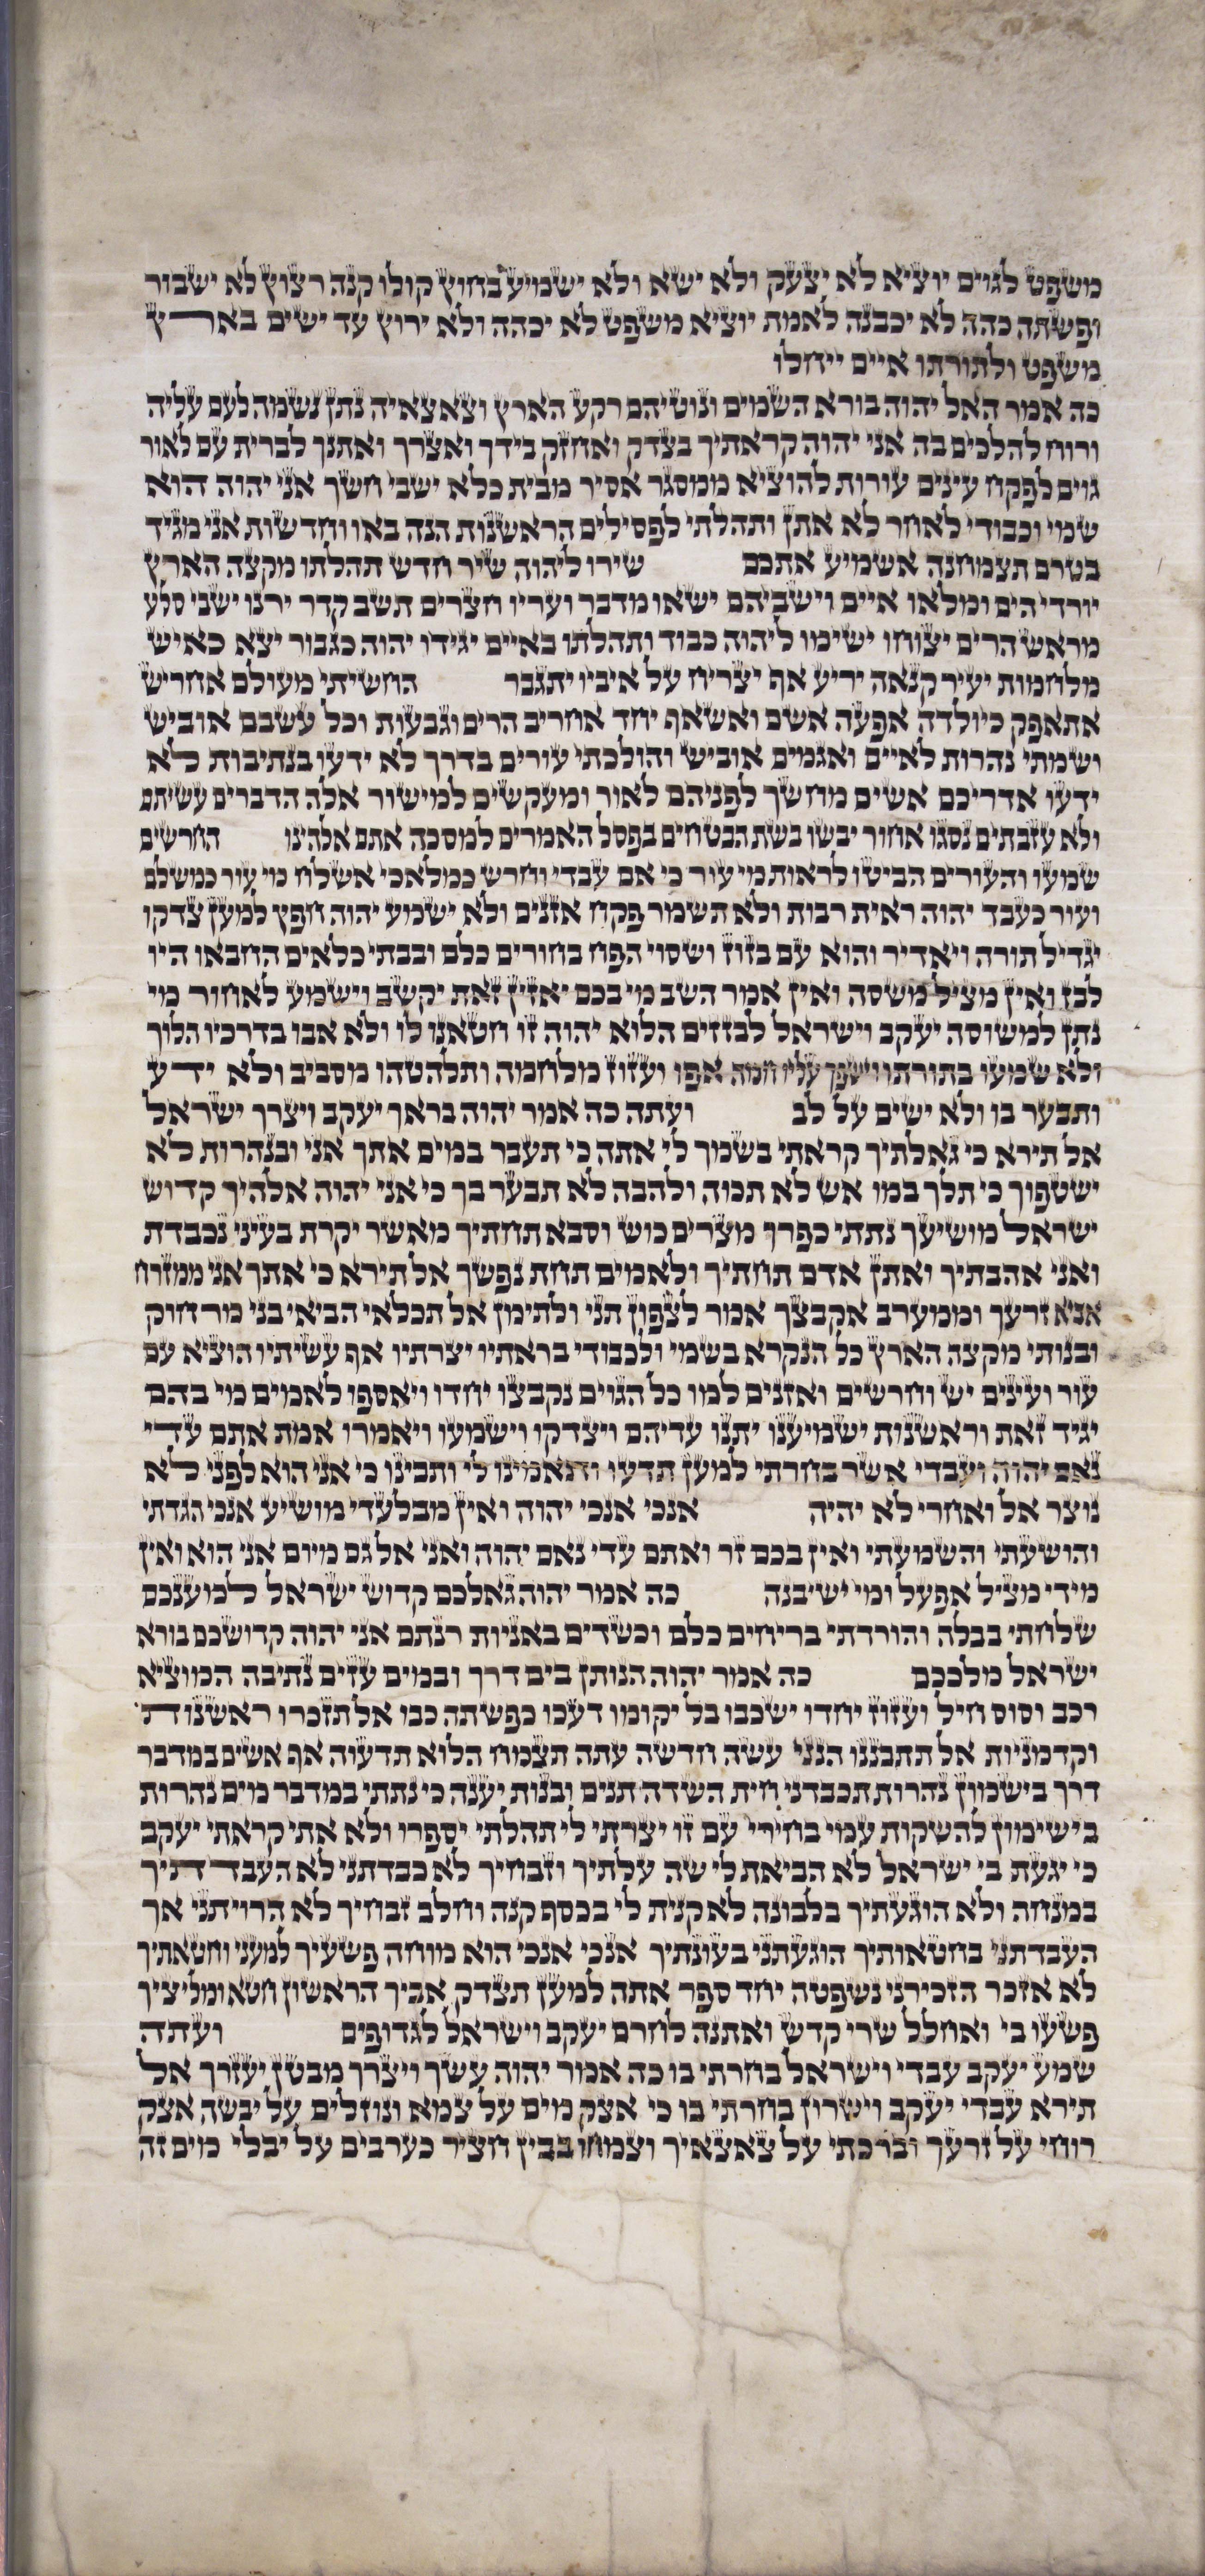 משפט לגוים יוציא לא יצעק ולא ישא ולא ישמיע בחוץ קולו קנה רצוץ לא ישבור
ופשתה כהה לא יכבנה לאמת יוציא משפט לא יכהה ולא ירוץ עד ישים בארץ
משפט ולתורתו איים ייחלו
כה אמר האל יהוה בורא השמים ונוטיהם רקע הארץ וצאצאיה נתן נשמה לעם עליה
ורוח להלכים בה אני יהוה קראתיך בצדק ואחזק בידך ואצרך ואתנך לברית עם לאור
גוים לפקח עינים עורות להוציא ממסגר אסיר מבית כלא ישבי חשך אני יהוה הוא
שמי וכבודי לאחר לא אתן ותהלתי לפסילים הראשנות הנה באו וחדשות אני מגיד
בטרם תצמחנה אשמיע אתכם שירו ליהוה שיר חדש תהלתו מקצה הארץ
יורדי הים ומלאו איים וישביהם ישאו מדבר ועריו חצרים תשב קדר ירנו ישבי סלע
מראש הרים יצוחו ישימו ליהוה כבוד ותהלתו באיים יגידו יהוה כגבור יצא כאיש
מלחמות יעיר קנאה יריע אף יצריח על איביו יתגבר החשיתי מעולם אחריש
אתאפק כיולדה אפעה אשם ואשאף יחד אחריב הרים וגבעות וכל עשבם אוביש
ושמתי נהרות לאיים ואגמים אוביש והולכתי עורים בדרך לא ידעו בנתיבות לא
ידעו אדריכם אשים מחשך לפניהם לאור ומעקשים למישור אלה הדברים עשיתם
ולא עזבתים נסגו אחור יבשו בשת הבטחים בפסל האמרים למסכה אתם אלהינו החרשים
שמעו והעורים הביטו לראות מי עור כי אם עבדי וחרש כמלאכי אשלח מי עור כמשלם
ועור כעבד יהוה ראית רבות ולא תשמר פקח אזנים ולא ישמע יהוה חפץ למען צדקו
יגדיל תורה ויאדיר והוא עם בזוז ושסוי הפח בחורים כלם ובבתי כלאים החבאו היו
לבז ואין מציל משסה ואין אמר השב מי בכם יאזין זאת יקשב וישמע לאחור מי
נתן למשוסה יעקב וישראל לבזזים הלוא יהוה זו חטאנו לו ולא אבו בדרכיו הלוך
ולא שמעו בתורתו וישפך עליו חמה אפו ועזוז מלחמה ותלהטהו מסביב ולא ידע
ותבער בו ולא ישים על לב ועתה כה אמר יהוה בראך יעקב ויצרך ישראל
אל תירא כי גאלתיך קראתי בשמך לי אתה כי תעבר במים אתך אני ובנהרות לא
ישטפוך כי תלך במו אש לא תכוה ולהבה לא תבער בך כי אני יהוה אלהיך קדוש
ישראל מושיעך נתתי כפרך מצרים כוש וסבא תחתיך מאשר יקרת בעיני נכבדת
ואני אהבתיך ואתן אדם תחתיך ולאמים תחת נפשך אל תירא כי אתך אני ממזרח
אביא זרעך וממערב אקבצך אמר לצפון תני ולתימן אל תכלאי הביאי בני מרחוק
ובנותי מקצה הארץ כל הנקרא בשמי ולכבודי בראתיו יצרתיו אף עשיתיו הוציא עם
עור ועינים יש וחרשים ואזנים למו כל הגוים נקבצו יחדו ויאספו לאמים מי בהם
יגיד זאת וראשנות ישמיענו יתנו עדיהם ויצדקו וישמעו ויאמרו אמת אתם עדי
נאם יהוה ועבדי אשר בחרתי למען תדעו ותאמינו לי ותבינו כי אני הוא לפני לא
נוצר אל ואחרי לא יהיה אנכי אנכי יהוה ואין מבלעדי מושיע אנכי הגדתי
והושעתי והשמעתי ואין בכם זר ואתם עדי נאם יהוה ואני אל גם מיום אני הוא ואין
מידי מציל אפעל ומי ישיבנה כה אמר יהוה גאלכם קדוש ישראל למענכם
שלחתי בבלה והורדתי בריחים כלם וכשדים באניות רנתם אני יהוה קדושכם בורא
ישראל מלככם כה אמר יהוה הנותן בים דרך ובמים עזים נתיבה המוציא
רכב וסוס חיל ועזוז יחדו ישכבו בל יקומו דעכו כפשתה כבו אל תזכרו ראשנות
וקדמניות אל תתבננו הנני עשה חדשה עתה תצמח הלוא תדעוה אף אשים במדבר
דרך בישמון נהרות תכבדני חית השדה תנים ובנות יענה כי נתתי במדבר מים נהרות
בישימון להשקות עמי בחירי עם זו יצרתי לי תהלתי יספרו ולא אתי קראתי יעקב
כי יגעת בי ישראל לא הביאת לי שה עלתיך וזבחיך לא כבדתני לא העבדתיך
במנחה ולא הוגעתיך בלבונה לא קנית לי בכסף קנה וחלב זבחיך לא הרויתני אך
העבדתני בחטאותיך הוגעתני בעונתיך אנכי אנכי הוא מוחה פשעיך למעני וחטאתיך
לא אזכר הזכירני נשפטה יחד ספר אתה למען תצדק אביך הראשון חטא ומליציך
פשעו בי ואחלל שרי קדש ואתנה לחרם יעקב וישראל לגדופים ועתה
שמע יעקב עבדי וישראל בחרתי בו כה אמר יהוה עשך ויצרך מבטן יעזרך אל
תירא עבדי יעקב וישרון בחרתי בו כי אצק מים על צמא ונוזלים על יבשה אצק
רוחי על זרעך וברכתי על צאצאיך וצמחו בבין חציר כערבים על יבלי מים זה